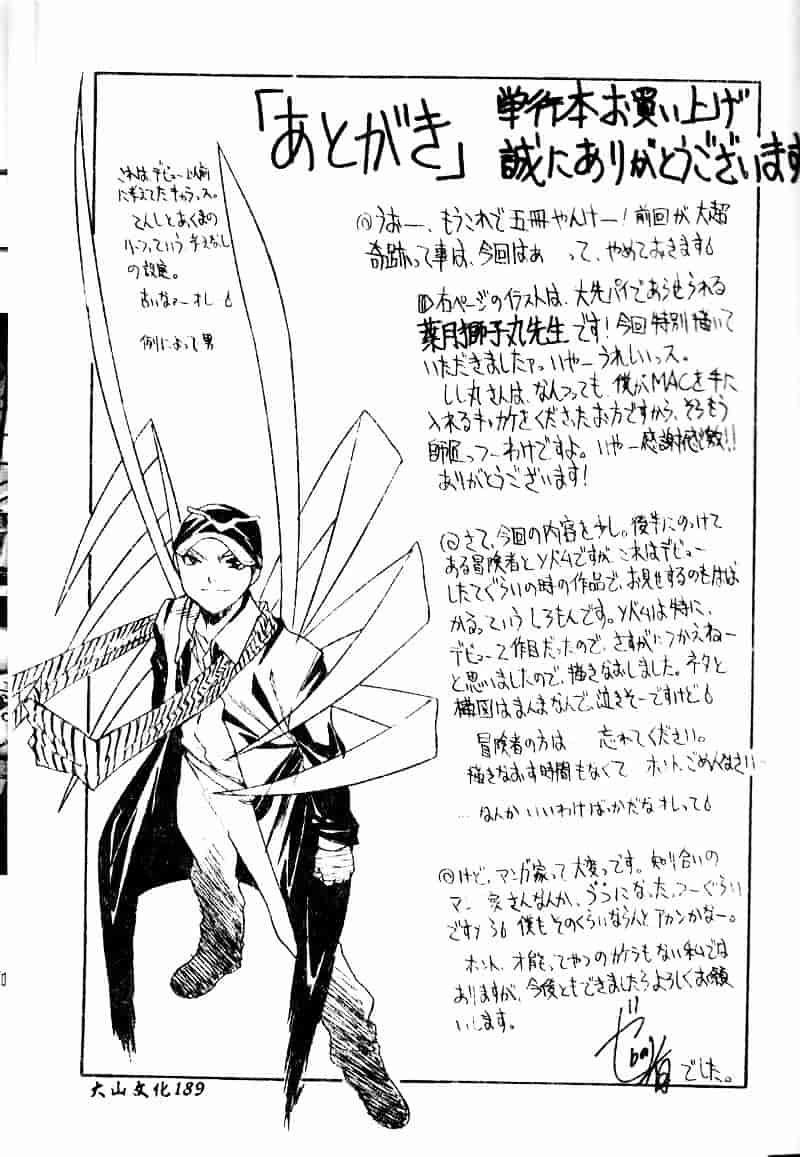 「あとがき」
単行本お買い上げ
誠にありがとうございます
これはデビュー以前
に考えてたキャラっス。
てんしとあくまの
ハーフっていう
の設定。
オレ
例によって男
◎うおー、もうこれで五冊やんけー!前回が大超
奇跡って事は、今回はぁ って、やめておきます
右ページのイラストは、大先パイであらせられる
薬月獅子丸先生です!今回特別描いて
いただきましたァっいやーうれしいっス。
しし丸さんは、なんつっても、僕がMACを手に
入れるキッカケをくださったお方ですから、そらもう
師匠っつーわけですよ。いやー感謝感激!!
ありがとうございます!
◎さて、今回の内容を少し。後半にのっけて
ある冒険者とYバムですが、これはデビュー
したてぐらいの時の作品で、お見せするのもはば
かるっていうしろもんです。Yバムは特に、
デビュー2作目だったので、さすがにつかえねー
と思いましたので、描きなおしました。ネタと
構図はまんまなんで、泣きそーですけど
冒険者の方は 忘れてください。
描きなおす時間もなくて ホントごめんなさい…
…なんかいいわけばっかだなオレって
◎けど、マンガ家って大変っす。知り合いの
さんなんか、うつになった、つーぐらい
ですから 僕もそのくらいならんとアカンかなー。
ホント、才能ってやつのカケラもない私では
ありますが、今後ともできましたらよろしくお願
いします。
でした。
大山文化189